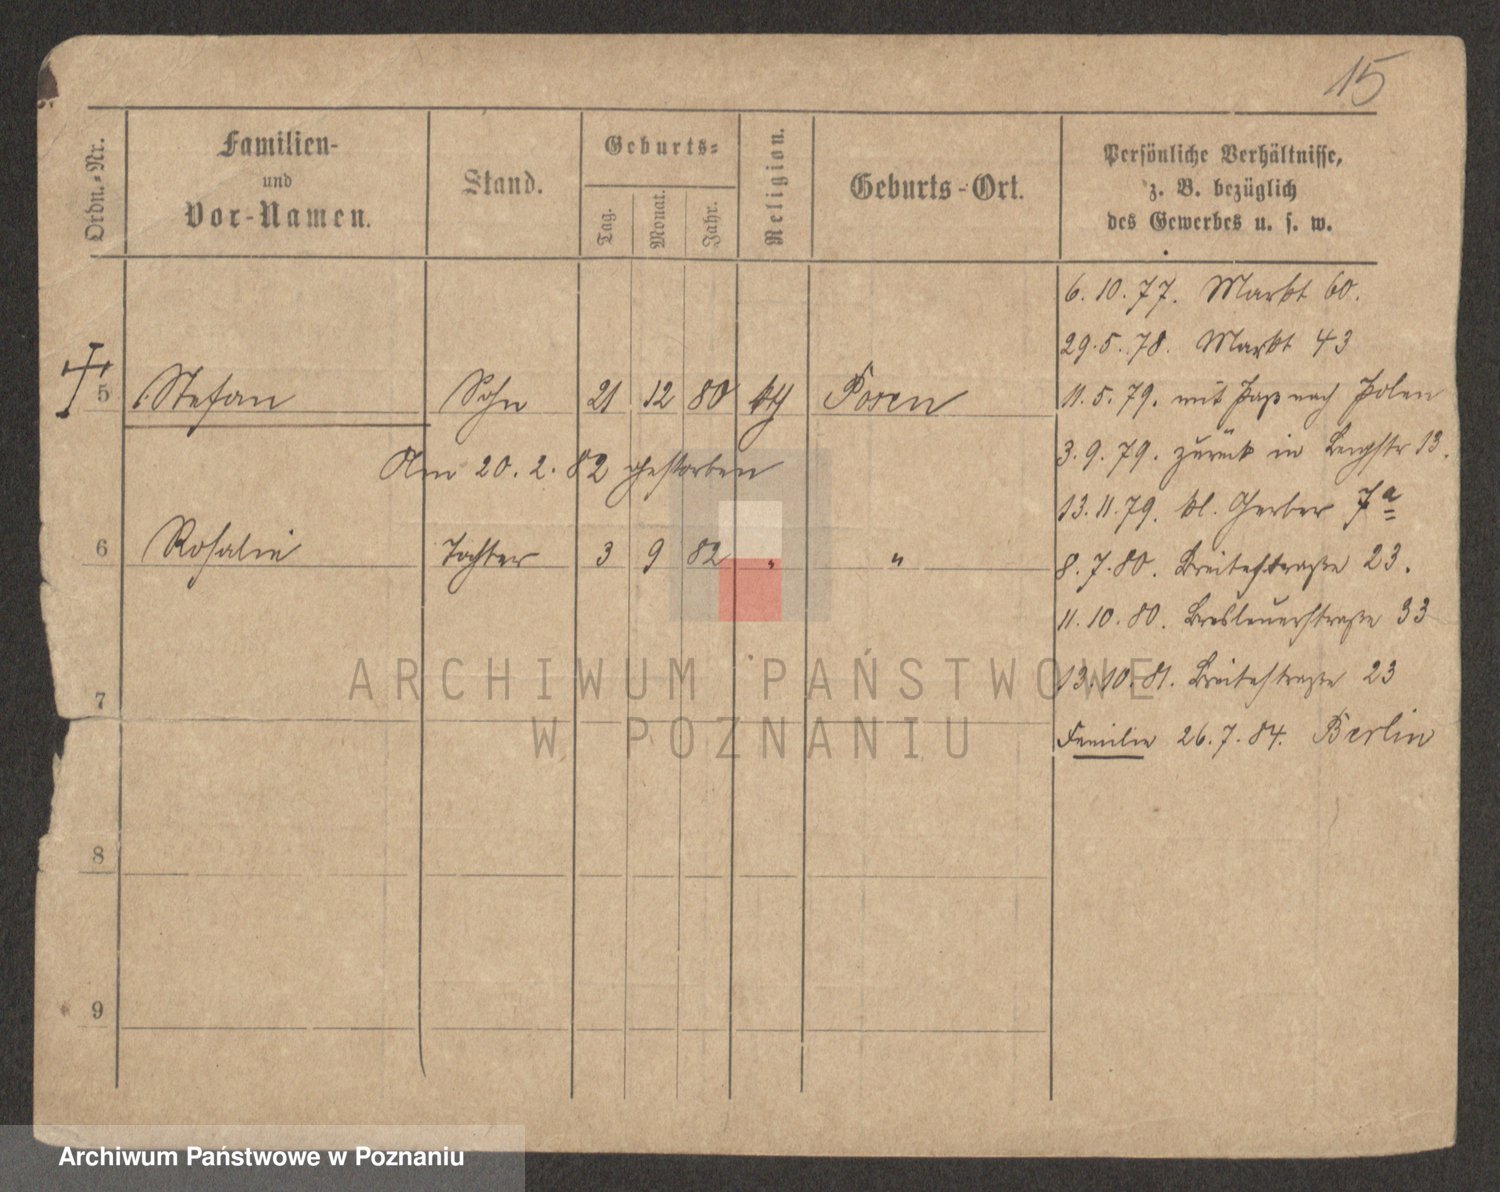 15
Ordn.-Nr.
Familien-
und
Vor-Namen.
Stand.
Geburts-
Tag.
Monat.
Jahr.
Religion.
Geburts-Ort.
Persönliche Verhältnisse,
z. B. bezüglich
des Gewerbes u. s. w.
6. 10. 77. Markt 60.
29. 5. 78. Markt 43
5 Stefan Sohn 21 12 80 kth Posen
11. 5. 79. mit Paß nach Polen
Am 20. 2. 82 gestorben
3. 9. 79. zurück in 13.
13. 11. 79. kl. Gerber 7a
6 Rosalie Tochter 3 9 82 " "
8. 7. 80. Breitestraße 23.
11. 10. 80. Breslauerstraße 33
13. 10. 81. Breitestraße 23
7
Familie 26. 7. 84. Berlin
8
9
ARCHIWUM PAŃSTWOWE
W POZNANIU
Archiwum Państwowe w Poznaniu